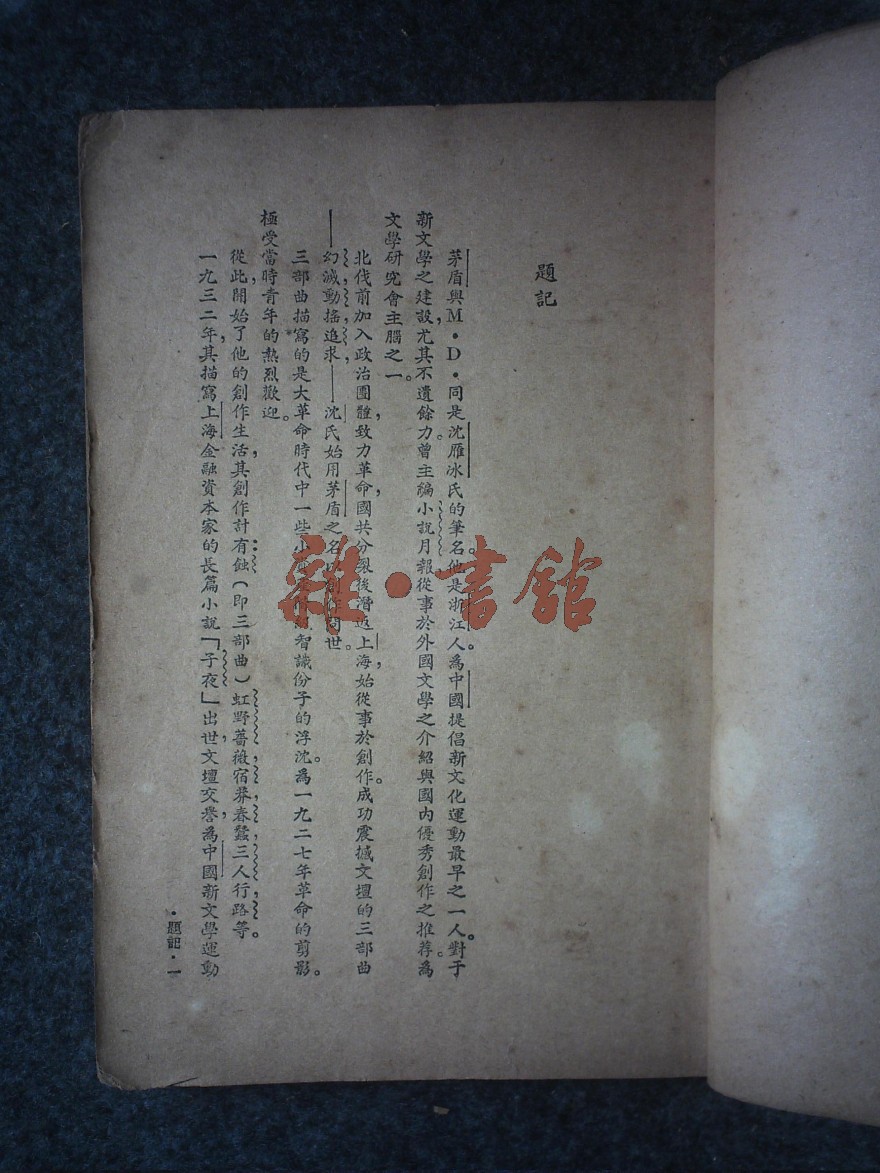 題記
茅盾與M·D·同是沈雁冰氏的筆名。他是浙江人。爲中國提倡新文化運動最早之一人。對于
新文學之建設，尤其不遺餘力。曾主編小說月報，從事於外國文學之介紹與國內優秀創作之推荐。爲
文學研究會主腦之一。
北伐前加入政治團體，致力革命，國共分裂後潛返上海，始從事於創作。成功震撼文壇的三部曲
——幻滅，動搖，追求——沈氏始用茅盾之名以創作問世。
三部曲描寫的是大革命時代中一些小智識份子的浮沈。爲一九二七年革命的剪影。
極受當時青年的熱烈歡迎。
從此，開始了他的創作生活，其創作計有：蝕（即三部曲）虹，野薔薇，宿莽，春蠶，三人行，路等。
一九三二年，其描寫上海金融資本家的長篇小說「子夜」出世，文壇交譽，爲中國新文學運動
·題記·一
雜·書館